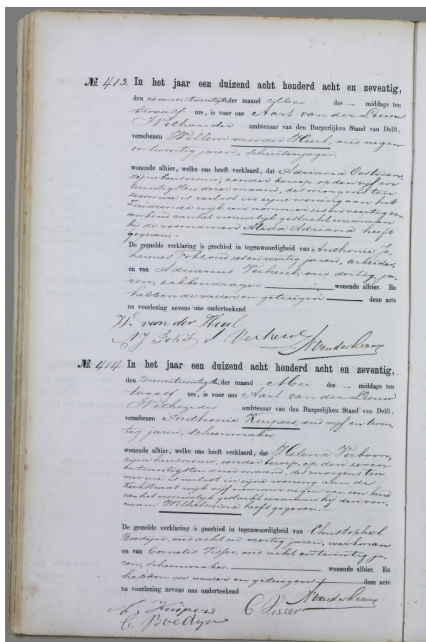 № 413. In het jaar een duizend acht honderd acht en zeventig,
den zevenentwintigsten der maand Mei des — middags ten
twaalf ure, is voor ons Aart van der Leeuw
Wethouder ambtenaar van den Burgerlijken Stand van Delft,
verschenen Willem van der Heul, oud negen
en twintig jaren,
wonende alhier, welke ons heeft verklaard, dat Adriana Oosterveen
zijne huisvrouw, zonder beroep, op den
twintigsten dezer maand, des morgens ten
ure is verlost in zijne woning aan het
wijk nommer
een kind van het vrouwelijk geslacht waaraan
hij de voornamen Alida Adriana heeft
gegeven.
De gemelde verklaring is geschied in tegenwoordigheid van Anthonie Jo-
hannes oud en veertig jaren, arbeider
en van Adrianus Verheul, oud dertig ja-
ren, zakkendrager wonende alhier. En
hebben de vader en getuigen deze acte
na voorlezing nevens ons onderteekend
W. van der Heul
A J
A Vanderleeuw
№ 414. In het jaar een duizend acht honderd acht en zeventig,
den zevenentwintigsten der maand Mei des — middags ten
twaalf ure, is voor ons Aart van der Leeuw
Wethouder ambtenaar van den Burgerlijken Stand van Delft,
verschenen Anthonie Kuipers oud vijf en twin-
tig jaren, schoenmaker
wonende alhier, welke ons heeft verklaard, dat Helena Verboom,
zijne huisvrouw, zonder beroep, op den zeven
en twintigsten dezer maand, des morgens ten
ure is verlost in zijne woning aan de
wijk vijf nommer negen van een kind
van het vrouwelijk geslacht waaraan hij den voor-
naam Wilhelmina heeft gegeven.
De gemelde verklaring is geschied in tegenwoordigheid van Christophel
Boedijn, oud acht en veertig jaren, werkman
en van Cornelis Visser, oud acht en twintig ja-
ren, schoenmaker wonende alhier. En
hebben de vader en getuigen deze acte
na voorlezing nevens ons onderteekend
A. Kuipers C Visser A Vanderleeuw
C. Boedijn